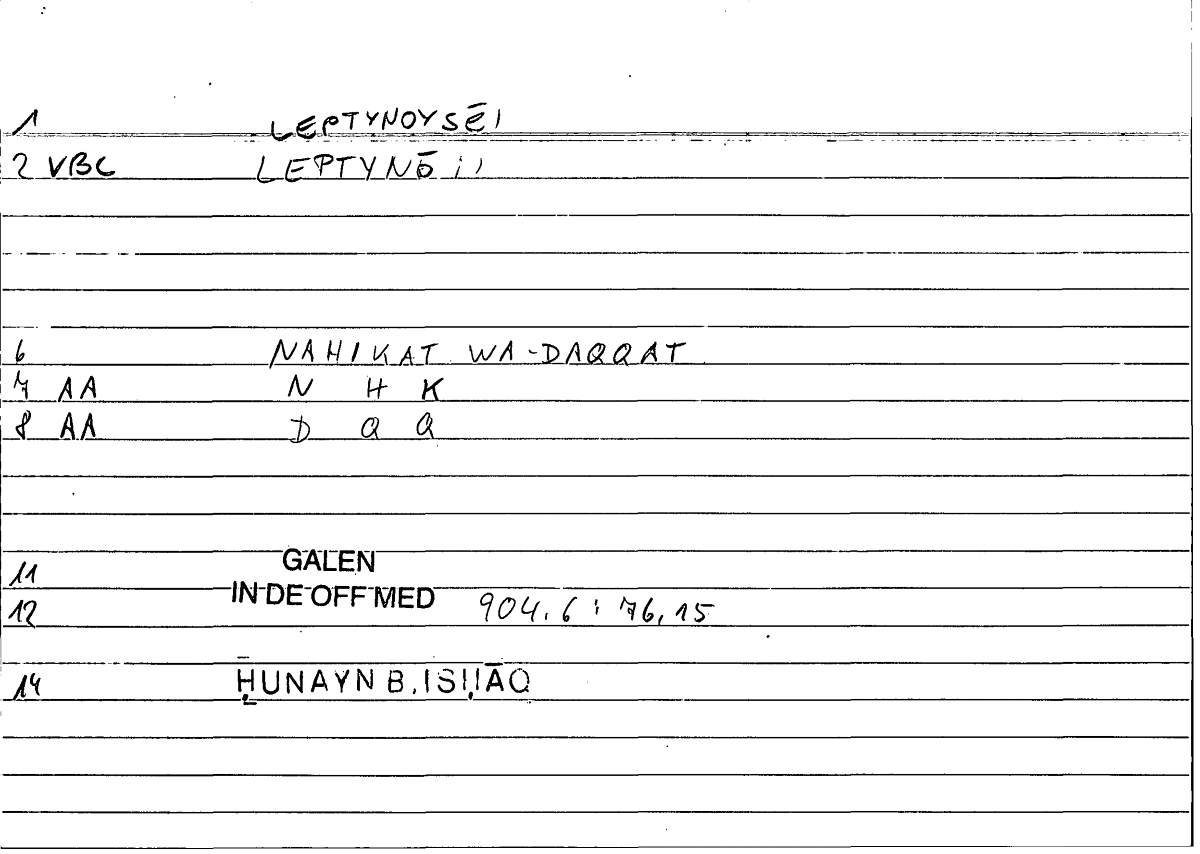 1 LEPTYNOYSĒI
2 VBC LEPTYNŌ
6 NAHIKAT WA-DAQQAT
7 AA N H K
8 AA D Q Q
11 GALEN
12 IN DE OFF MED 904,6 : 76,15
14 ḤUNAYN B. ISḤĀQ